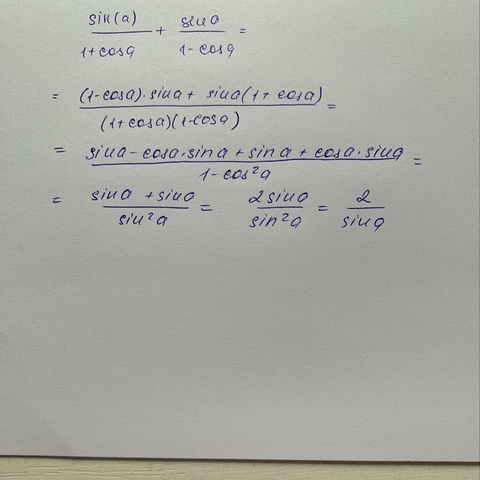 sin(a)/(1+cosa) + sina/(1-cosa) =
= ((1-cosa)·sina + sina(1+cosa))/((1+cosa)(1-cosa)) =
= (sina-cosa·sina+sina+cosa·sina)/(1-cos²a) =
= (sina+sina)/(sin²a) = (2sina)/(sin²a) = 2/(sina)